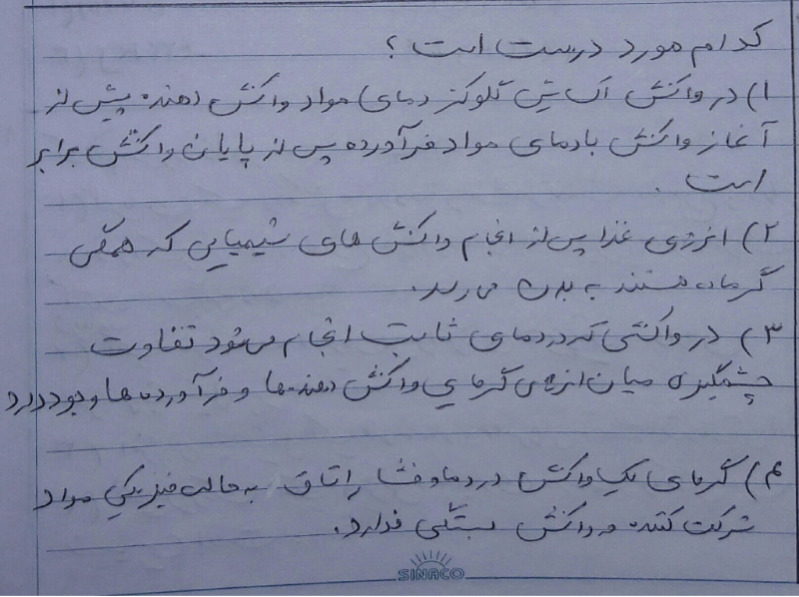 کدام مورد درست است؟
۱) در واکنش اکسایش گلوکز دمای مواد واکنش دهنده پیش از
آغاز واکنش با دمای مواد فرآورده پس از پایان واکنش برابر
است.
۲) انرژی غذا پس از انجام واکنش های شیمیایی که همگی
گرماده هستند به بدن می رسد.
۳) در واکنشی که در دمای ثابت انجام می شود تفاوت
چشمگیری میان انرژی گرمایی واکنش دهنده ها و فرآورده ها وجود دارد
۴) گرمای یک واکنش در دما و فشار اتاق به حالت فیزیکی مواد
شرکت کننده در واکنش بستگی ندارد.
SINACO